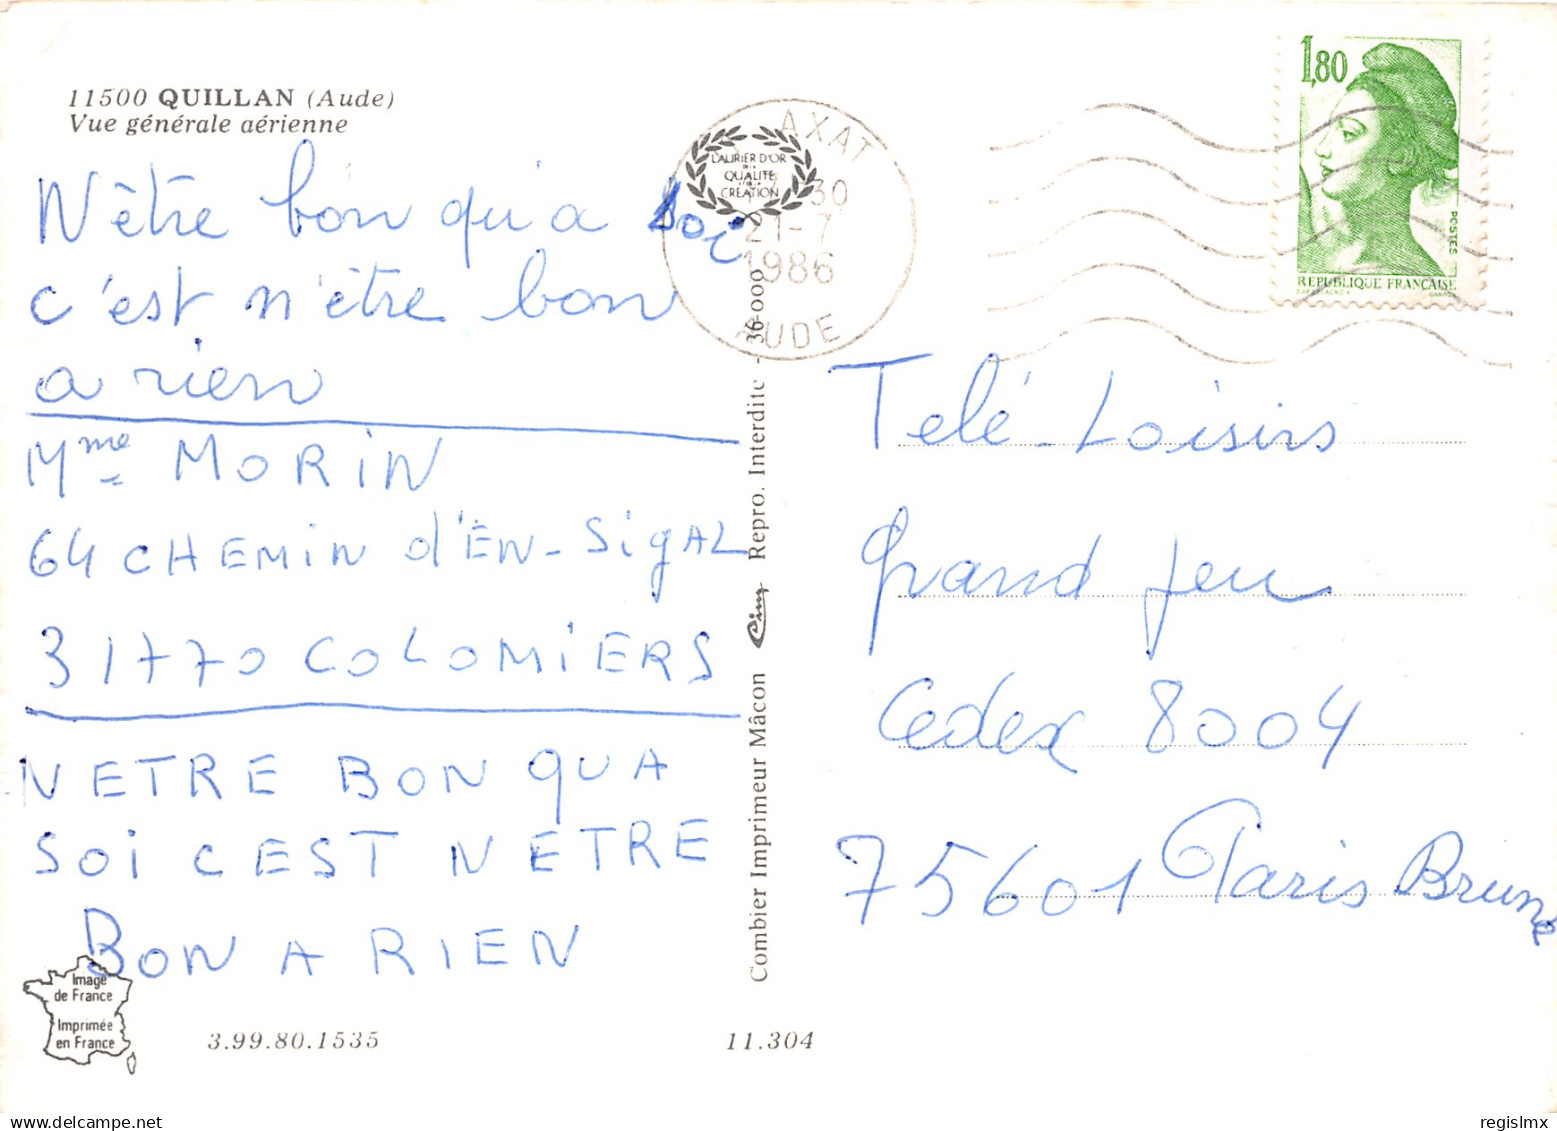 11500 QUILLAN (Aude)
Vue générale aérienne
N'être bon qu'a soi
c'est n'être bon
a rien
Mme MORIN
64 CHEMIN d'EN-SigAL
31770 COLOMIERS
NETRE BON QUA
SOI CEST NETRE
BON A RIEN
Image
de France
Imprimée
en France
3.99.80.1535
11.304
Combier Imprimeur Mâcon Cim Repro. Interdite - 36-000
LAURIER D'OR
DE LA
QUALITE
ET DE LA
CREATION
AXAT
30
21-7
1986
AUDE
1,80
POSTES
REPUBLIQUE FRANÇAISE
Telé-Loisirs
grand jeu
Cedex 8004
75601 Paris Brune
regislmx